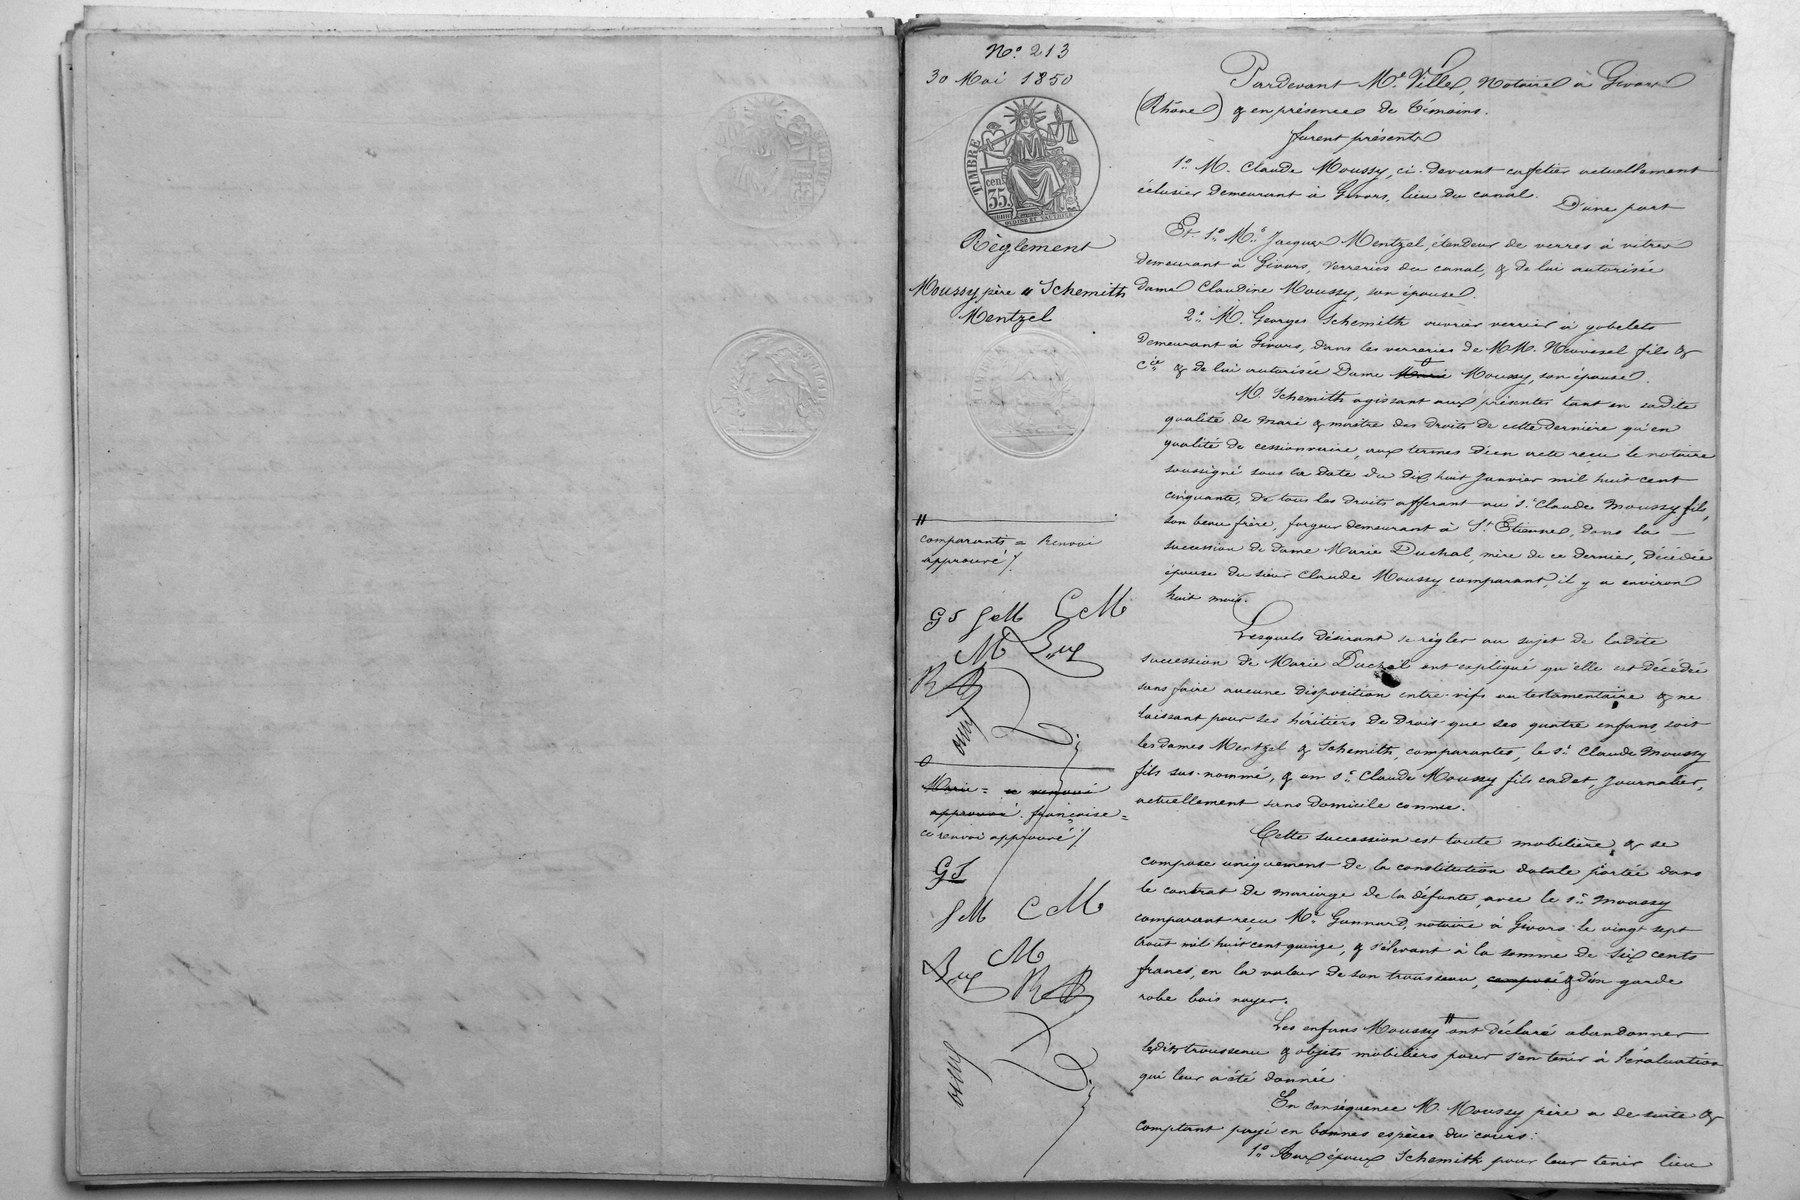 N.º 213
30 Mai 1850
TIMBRE
cent
35.
Règlement
Moussy père & Schemith
Mentzel
comparants = Renvoi
approuvé /.
GS JM CM
M
Marie = ce renvoi
approuvé. françoise =
ce renvoi approuvé /.
GS
JM CM
M
Pardevant Me Ville, Notaire à Givors
(Rhône) & en présence de témoins.
furent présents
1.º M. Claude Moussy, ci-devant cafetier actuellement
éclusier demeurant à Givors, lieu du canal.
D'une part
Et 1.º M. Jacques Mentzel, étendeur de verres à vitres
demeurant à Givors, verreries du canal, & de lui autorisée
dame Claudine Moussy, son épouse.
2.º M. Georges Schemith ouvrier verrier à gobelets
demeurant à Givors, dans les verreries de MM. Neuvesel fils &
Cie & de lui autorisée Dame Marie Moussy, son épouse.
M. Schemith agissant aux présentes tant en sadite
qualité de mari & maître des droits de cette dernière qu'en
qualité de cessionnaire, aux termes d'un acte reçu le notaire
soussigné sous la date du dix huit Janvier mil huit cent
cinquante, de tous les droits afferant au s. Claude Moussy fils,
son beau frère, forgeur demeurant à St Etienne, dans la
succession de dame Marie Duchal, mère de ce dernier, décédée
épouse du sieur Claude Moussy comparant, il y a environ
huit mois.
Lesquels désirant se régler au sujet de ladite
succession de Marie ont expliqué qu'elle est décédée
sans faire aucune disposition entre-vifs ou testamentaire & ne
laissant pour ses héritiers de Droit que ses quatre enfans, soit
les dames Mentzel & Schemith, comparantes, le sr Claude Moussy
fils sus-nommé, & un sr Claude Moussy fils cadet, journalier,
actuellement sans domicile connu.
Cette succession est toute mobilière & se
compose uniquement de la constitution dotale portée dans
le contrat de mariage de la défunte avec le sr Moussy
comparant reçu Me Gonnard, notaire à Givors le vingt sept
août mil huit cent quinze, & s'élevant à la somme de six cents
francs, en la valeur de son trousseau, composé & d'un garde
robe bois noyer.
Les enfans Moussy ont déclaré abandonner
lesdits trousseau & objets mobiliers pour s'en tenir à l'évaluation
qui leur a été donnée.
En conséquence M. Moussy père a de suite &
comptant payé en bonnes espèces du cours:
1.º Aux époux Schemith pour leur tenir lieu